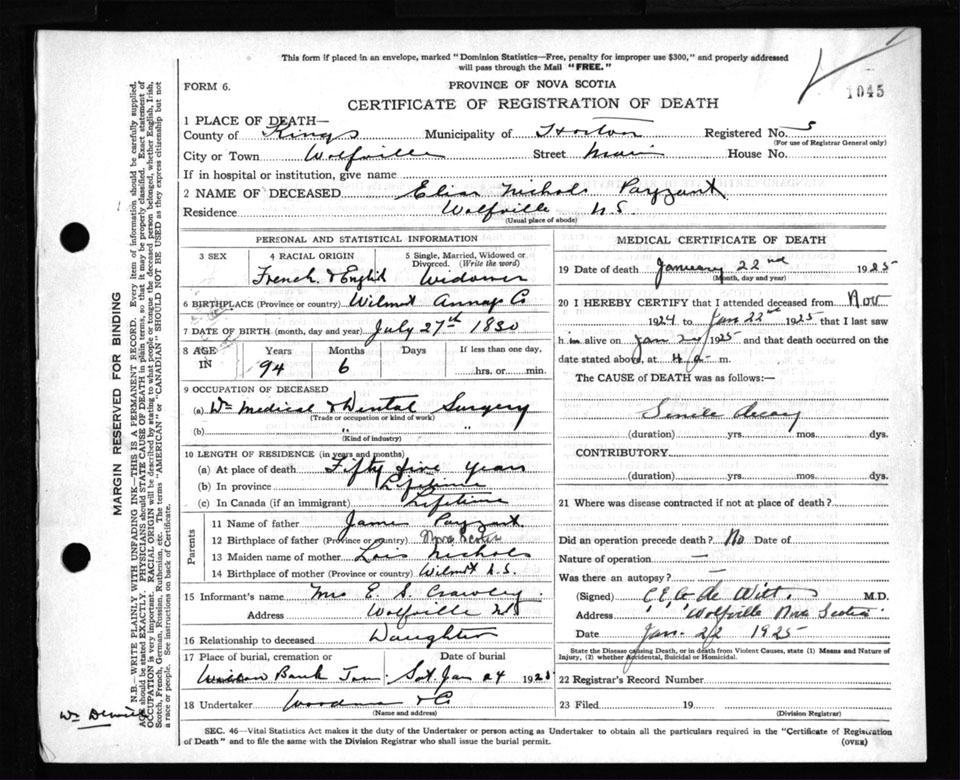 This form if placed in an envelope, marked "Dominion Statistics—Free, penalty for improper use $300," and properly addressed
will pass through the Mail "FREE."
1045
FORM 6.
PROVINCE OF NOVA SCOTIA
CERTIFICATE OF REGISTRATION OF DEATH
1 PLACE OF DEATH—
County of Kings Municipality of Horton Registered No. 5
(For use of Registrar General only)
City or Town Wolfville Street Main House No.
If in hospital or institution, give name
2 NAME OF DECEASED Elias Nichols Payzant
Residence Wolfville N.S.
(Usual place of abode)
PERSONAL AND STATISTICAL INFORMATION
3 SEX
4 RACIAL ORIGIN
French & English
5 Single, Married, Widowed or
Divorced. (Write the word)
Widower
6 BIRTHPLACE (Province or country) Wilmot Annap Co
7 DATE OF BIRTH (month, day and year) July 27th 1830
8 AGE IN
Years Months Days If less than one day,
94 6 hrs. or min.
9 OCCUPATION OF DECEASED
(a) Medical & Dental Surgery
(Trade or occupation or kind of work)
(b) " "
(Kind of industry)
10 LENGTH OF RESIDENCE (in years and months)
(a) At place of death Fifty five years
(b) In province Lifetime
(c) In Canada (if an immigrant) Lifetime
Parents
11 Name of father James Payzant
12 Birthplace of father (Province or country) Nova Scotia
13 Maiden name of mother Lois Nichols
14 Birthplace of mother (Province or country) Wilmot N.S.
15 Informant's name Mrs E. S. Crawley
Address Wolfville NS
16 Relationship to deceased Daughter
17 Place of burial, cremation or Date of burial
Willow Bank Sat Jan 24 1925
18 Undertaker Woodman & Co
(Name and address)
MEDICAL CERTIFICATE OF DEATH
19 Date of death January 22nd 1925
(Month, day and year)
20 I HEREBY CERTIFY that I attended deceased from Nov
1924 to Jan 22nd 1925 that I last saw
h im alive on Jan 1925 and that death occurred on the
date stated above, at 4 a m.
The CAUSE OF DEATH was as follows:—
Senile decay
(duration) yrs. mos. dys.
CONTRIBUTORY
(duration) yrs. mos. dys.
21 Where was disease contracted if not at place of death?
Did an operation precede death? No Date of
Nature of operation —
Was there an autopsy? —
(Signed) De Witt M.D.
Address Wolfville Nova Scotia
Date Jan. 22 1925
State the Disease causing Death, or in death from Violent Causes, state (1) Means and Nature of
Injury, (2) whether Accidental, Suicidal or Homicidal.
22 Registrar's Record Number
23 Filed 19
(Division Registrar)
SEC. 46—Vital Statistics Act makes it the duty of the Undertaker or person acting as Undertaker to obtain all the particulars required in the "Certificate of Registration
of Death" and to file the same with the Division Registrar who shall issue the burial permit.
(OVER)
MARGIN RESERVED FOR BINDING
N.B.—WRITE PLAINLY WITH UNFADING INK—THIS IS A PERMANENT RECORD. Every item of information should be carefully supplied.
AGE should be stated EXACTLY. PHYSICIANS should STATE CAUSE OF DEATH in plain terms, so that it may be properly classified. Exact statement of
OCCUPATION is very important. RACIAL ORIGIN will be described by stating to what people or tongue the deceased person belonged, whether English, Irish,
Scotch, French, German, Russian, Ruthenian, etc. The terms "AMERICAN" or "CANADIAN" SHOULD NOT BE USED as they express citizenship but not
a race or people. See instructions on back of Certificate.